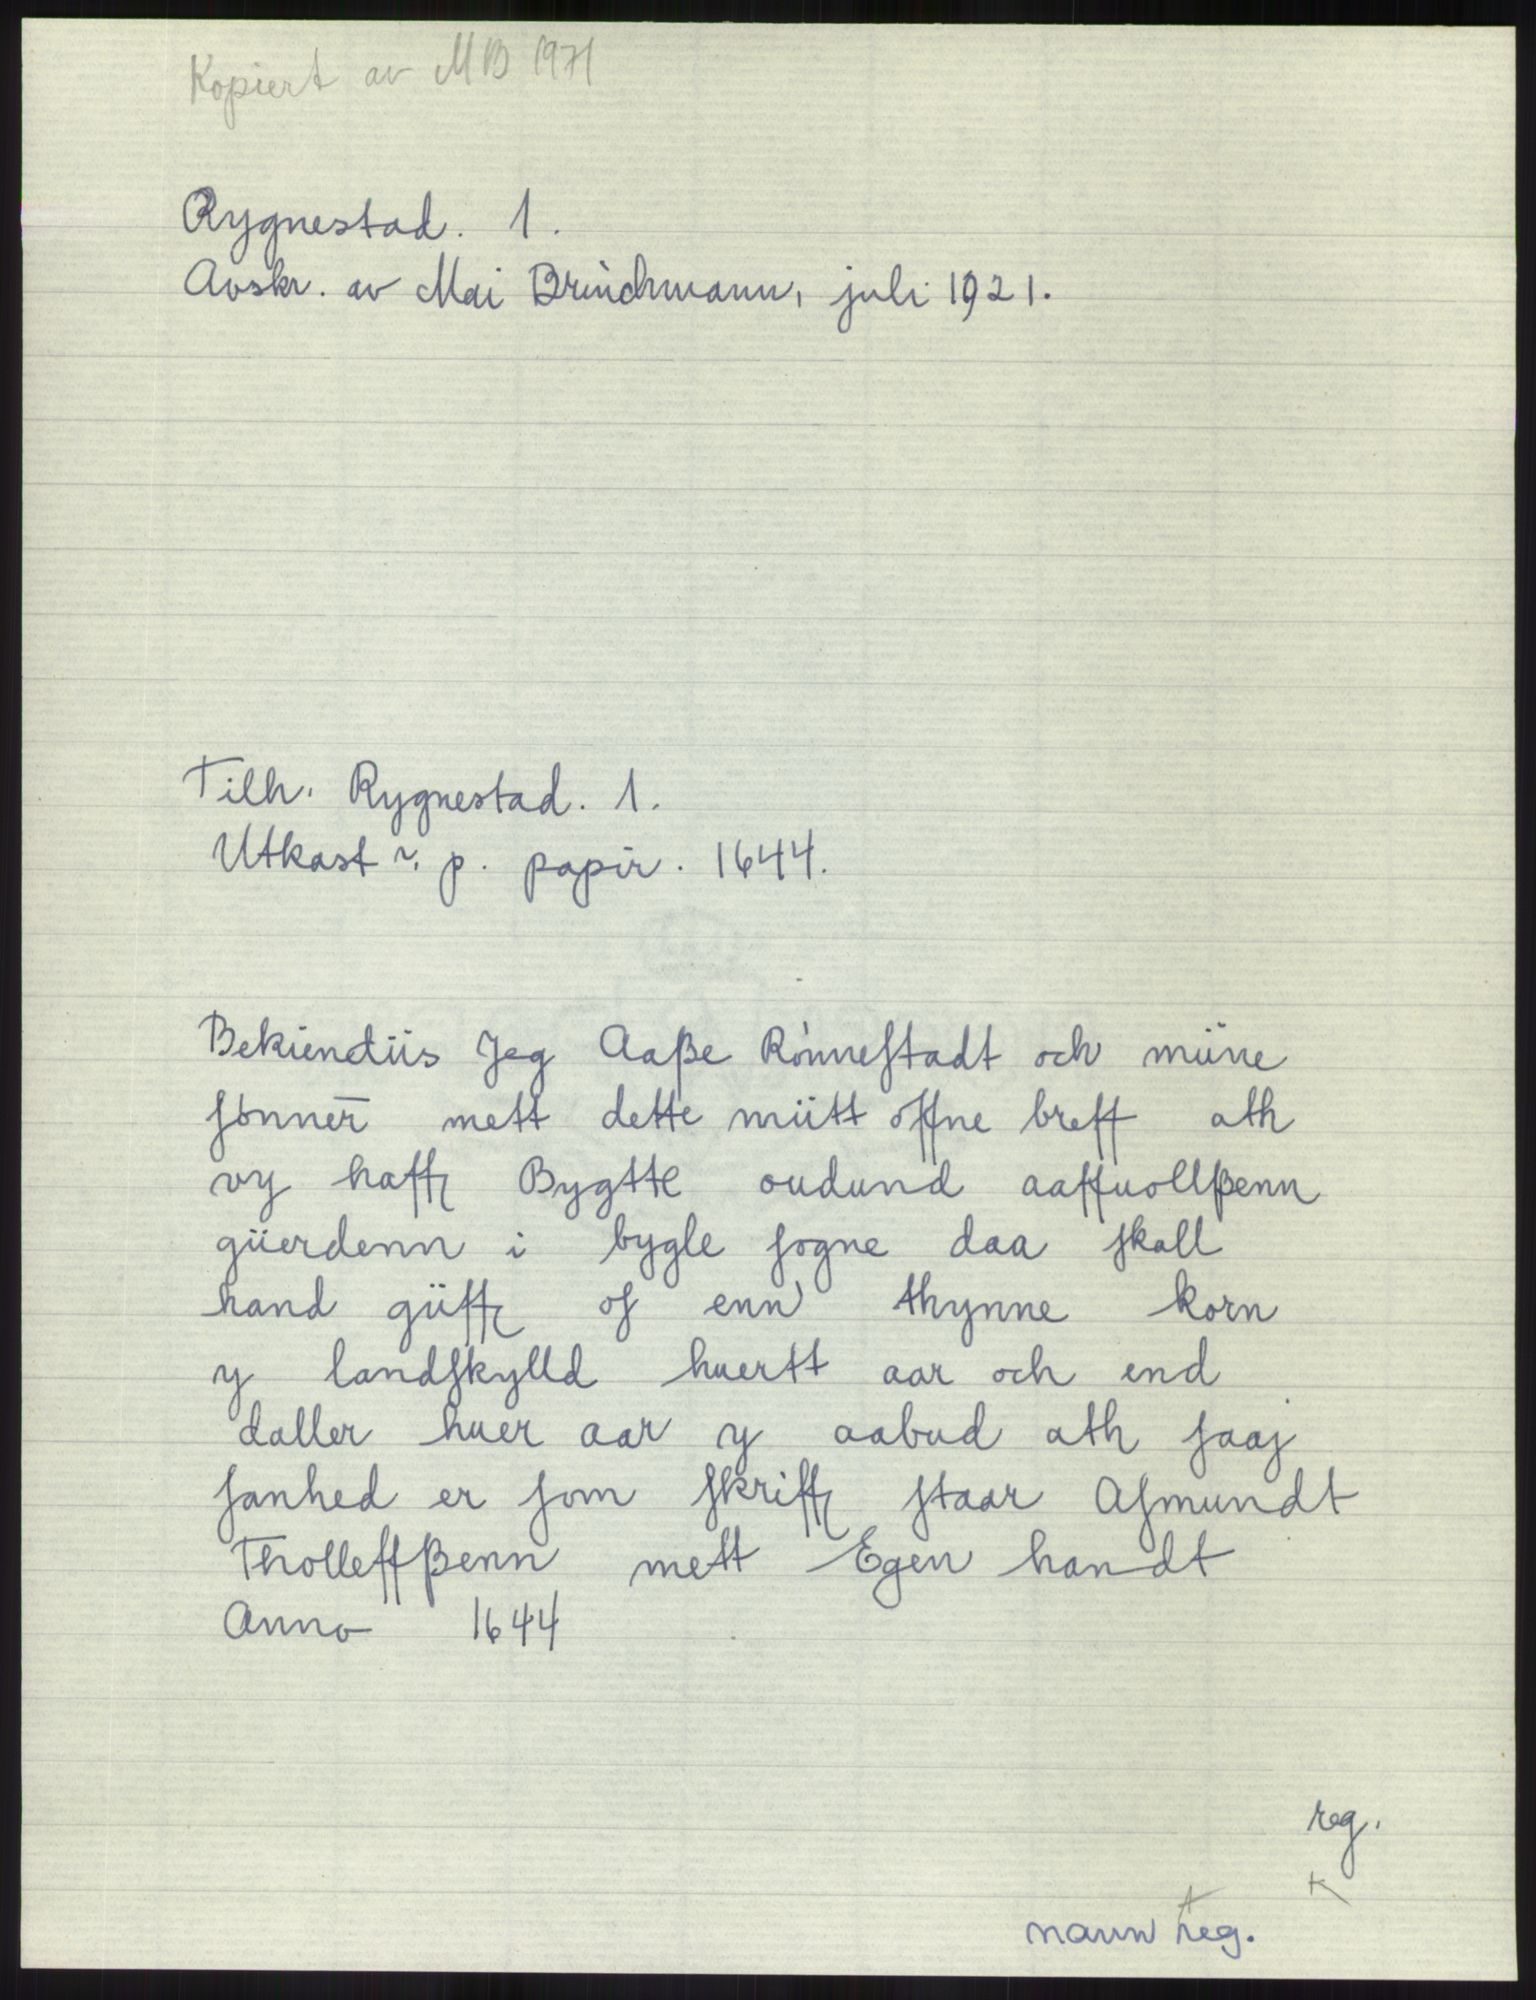 Kopiert av MB 1971
Rygnestad. 1.
Avskr. av Mai Brinchmann, juli 1921.
Tilh. Rygnestad. 1.
Utkast ?. p. papir. 1644.
Bekiendiis Jeg Aaße Rönneſtadt och miine
ſönner̄ mett dette miitt offne breff ath
vy haffꝛ Bygtte oudund aaffuollßenn
giierdenn i bygle ſogne daa ſkall
hand giiffꝛ oſ enn thynne korn
y landſkylld huertt aar och end
daller huer aar y aabud ath ſaaj
ſanhed er ſom ſkriffꝛ ſtaar Aſmundt
Tholleffßenn mett Egen handt
Anno 1644
reg.
K
navn reg.